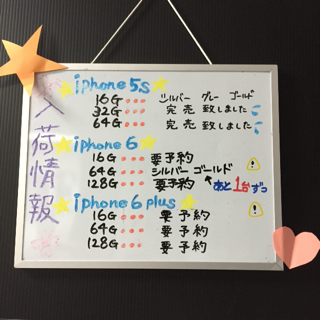 入荷情報
iphone 5s
16G・・・シルバー グレー ゴールド
32G・・・完売致しました
64G・・・完売致しました
iphone 6
16G・・・要予約
64G・・・シルバー ゴールド
128G・・・要予約 あと1台ずつ
iphone 6 plus
16G・・・要予約
64G・・・要予約
128G・・・要予約